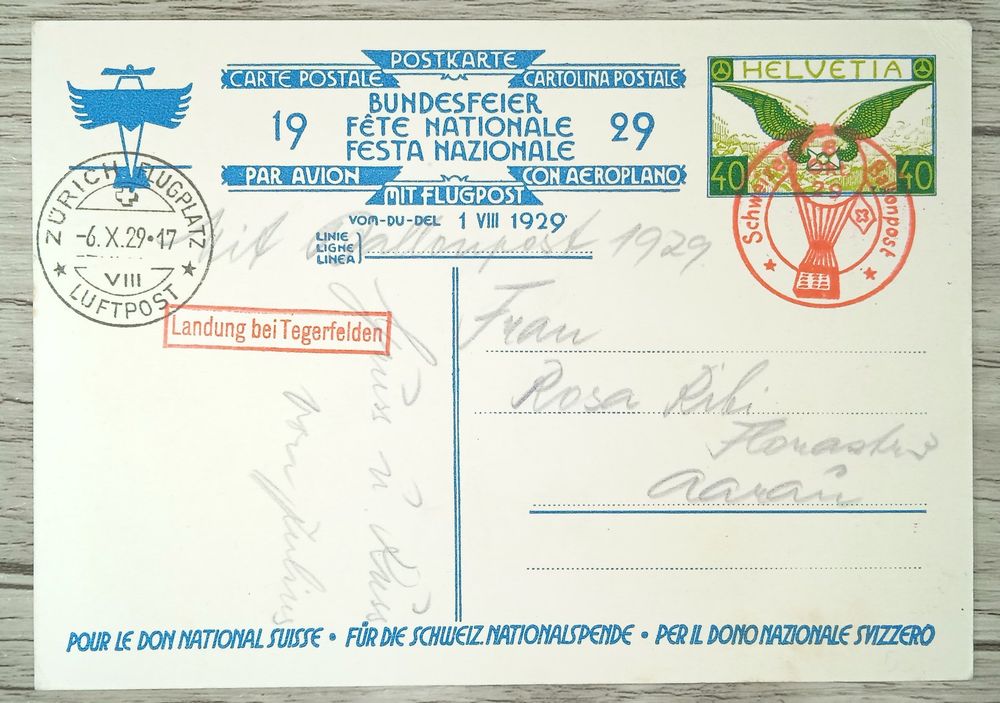 POSTKARTE
CARTE POSTALE CARTOLINA POSTALE
19 BUNDESFEIER 29
FÊTE NATIONALE
FESTA NAZIONALE
PAR AVION CON AEROPLANO
MIT FLUGPOST
VOM-DU-DEL 1 VIII 1929
LINIE
LIGNE
LINEA
HELVETIA
40 40
Schweiz. Ballonpost
29
ZÜRICH FLUGPLATZ
-6.X.29•17
VIII
LUFTPOST
Mit Ballonpost 1929
Landung bei Tegerfelden
Frau
Rosa
Aarau
Gruss u. Kuss
von
POUR LE DON NATIONAL SUISSE • FÜR DIE SCHWEIZ. NATIONALSPENDE • PER IL DONO NAZIONALE SVIZZERO